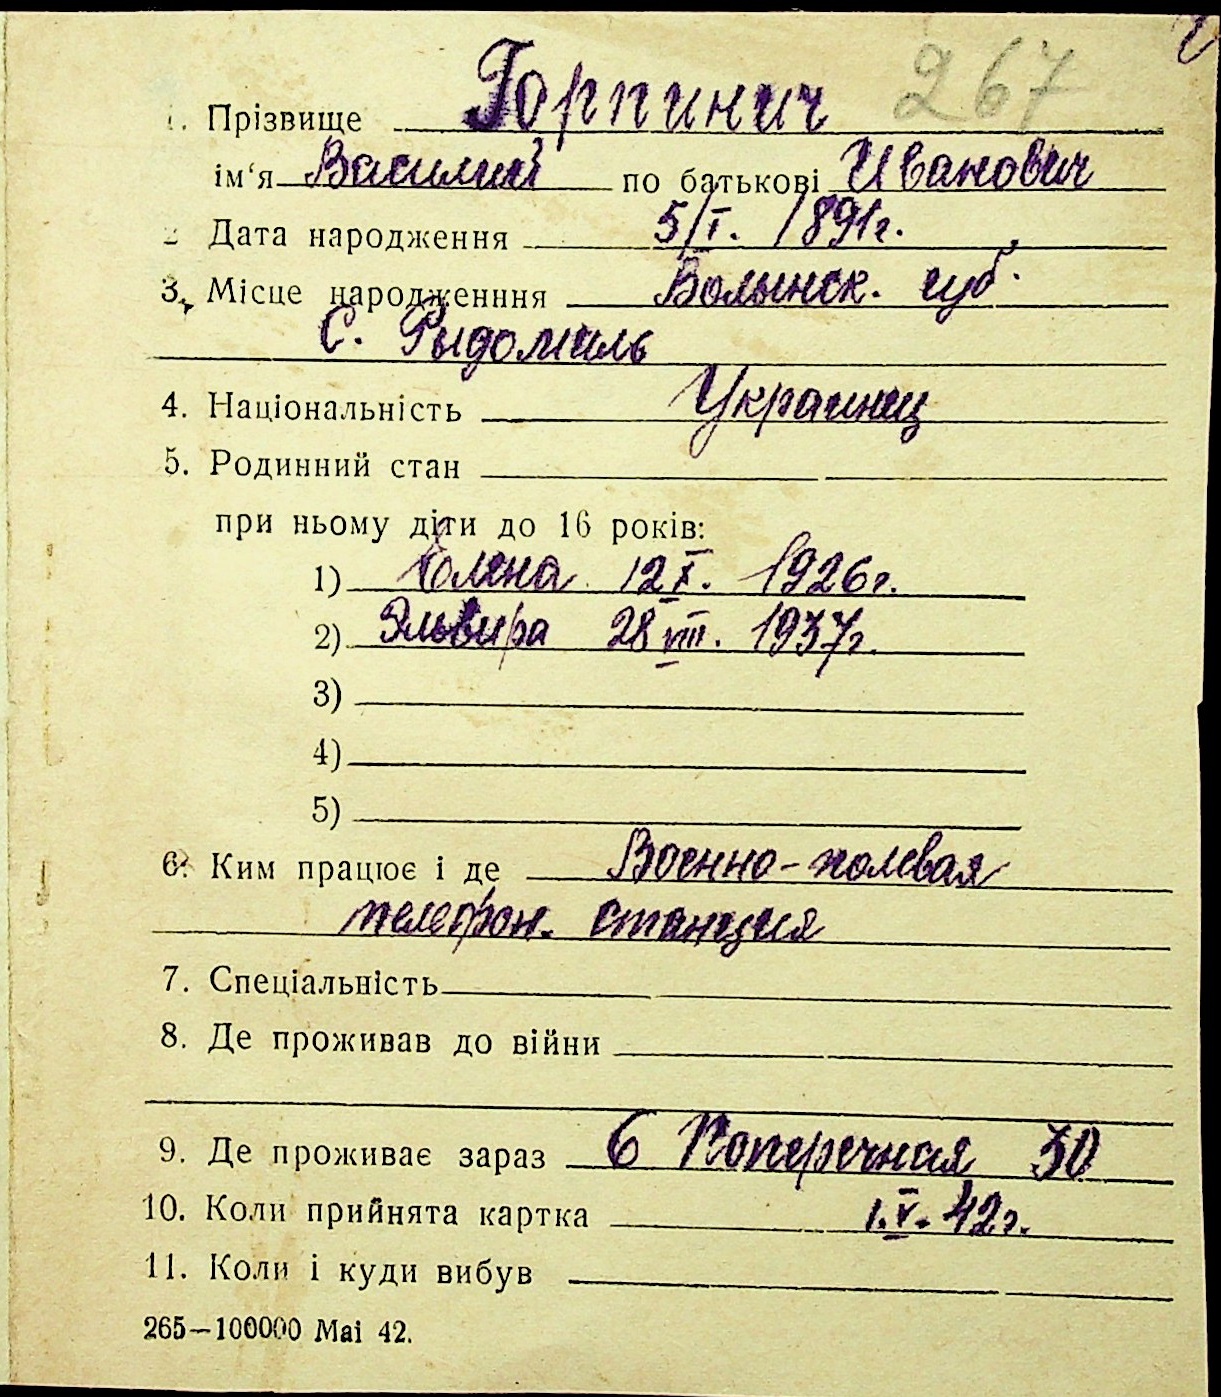 267
1. Прізвище Горпинич
ім'я Василий по батькові Иванович
2 Дата народження 5/I. 1891г.
3. Місце народженння Волынск. губ.
С. Рыдомиль
4. Національність Украинец
5. Родинний стан
при ньому діти до 16 років:
1) Елена 12 X. 1926г.
2) Эльвира 28 VIII. 1937г.
3)
4)
5)
6. Ким працює і де Военно-полевая
телефон. станция
7. Спеціальність
8. Де проживав до війни
9. Де проживає зараз 6 Поперечная 30
10. Коли прийнята картка 1.V.42г.
11. Коли і куди вибув
265—100000 Mai 42.